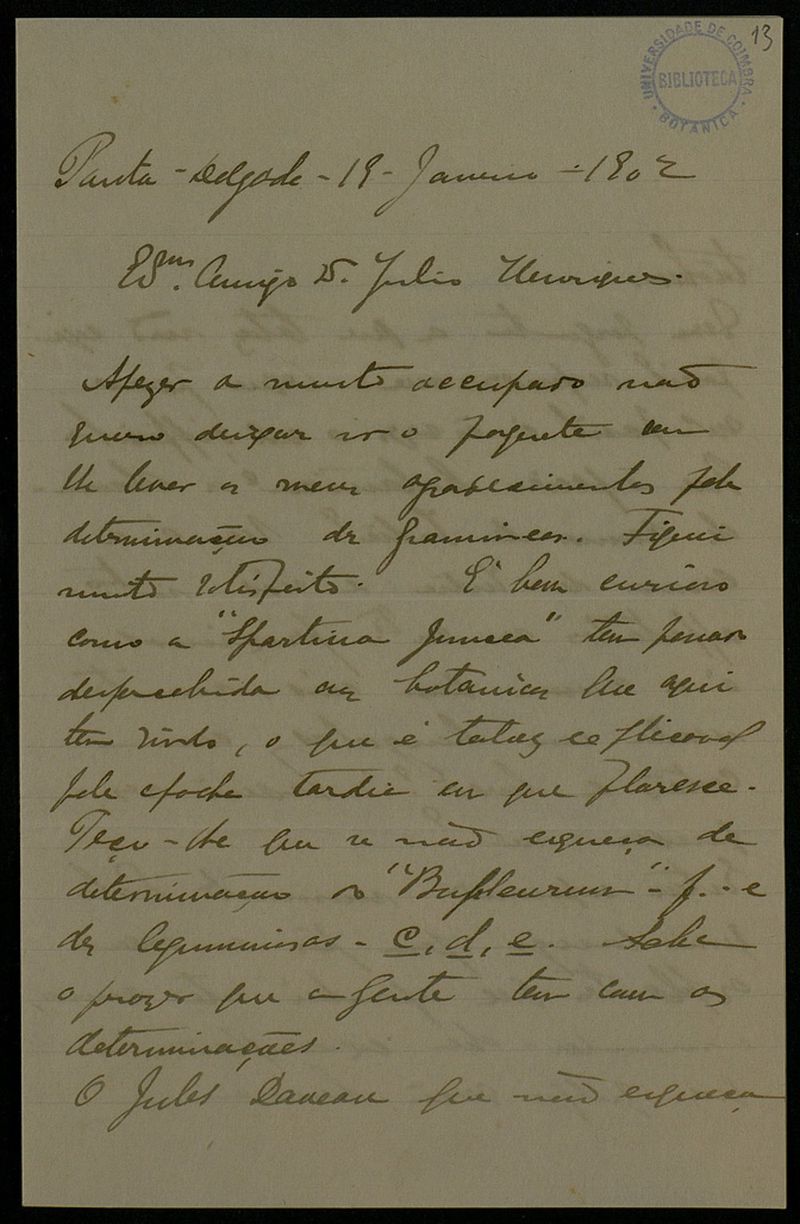 13
UNIVERSIDADE DE COIMBRA
BIBLIOTECA
BOTANICA
Ponta-Delgada - 19 - Janeiro - 1902
Exmo. Amigo Dr. Julio Henriques.
Apezar de muito occupado não
quero deixar ir o paquete sem
lhe levar os meus agradecimentos pela
determinação das gramineas. Fiquei
muito satisfeito. É bem curioso
como a "Spartina juncea" tem passado
despercebida aos botanicos que aqui
tem vindo, o que é talvez explicavel
pela epocha tardia em que floresce.
Peço-lhe que se não esqueça da
determinação do "Bupleurum" - f. - e
das leguminosas - c, d, e. Sabe
o prazer que a gente tem com as
determinações.
O Jules Daveau que não esqueça